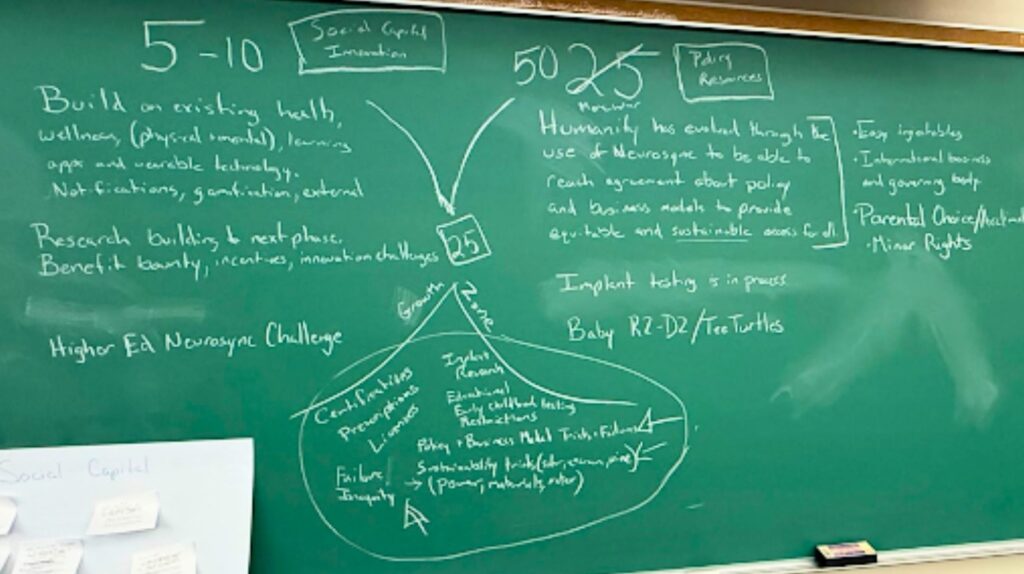 5-10
Social Capital
Innovation
Build on existing health,
wellness, (physical + mental), learning
apps and wearable technology.
Notifications, gamification, external
Research building to next phase.
Benefit bounty, incentives, innovation challenges
Higher Ed Neurosync Challenge
50 25
Policy
Resources
Humanity has evolved through the
use of Neurosync to be able to
reach agreement about policy
and business models to provide
equitable and sustainable access for all.
Implant testing is in process
Baby R2-D2/TeeTurtles
• Easy injectables
• International business
and governing body
• Parental Choice//
• Minor Rights
25
Growth Zone
Certifications
Prescriptions
Licenses
Failure
Inequity
Implant
Research
Educational
Early childhood testing
Restrictions
Policy + Business Model Trials + Failures
Sustainability trials
(power, materials, )
Social Capital